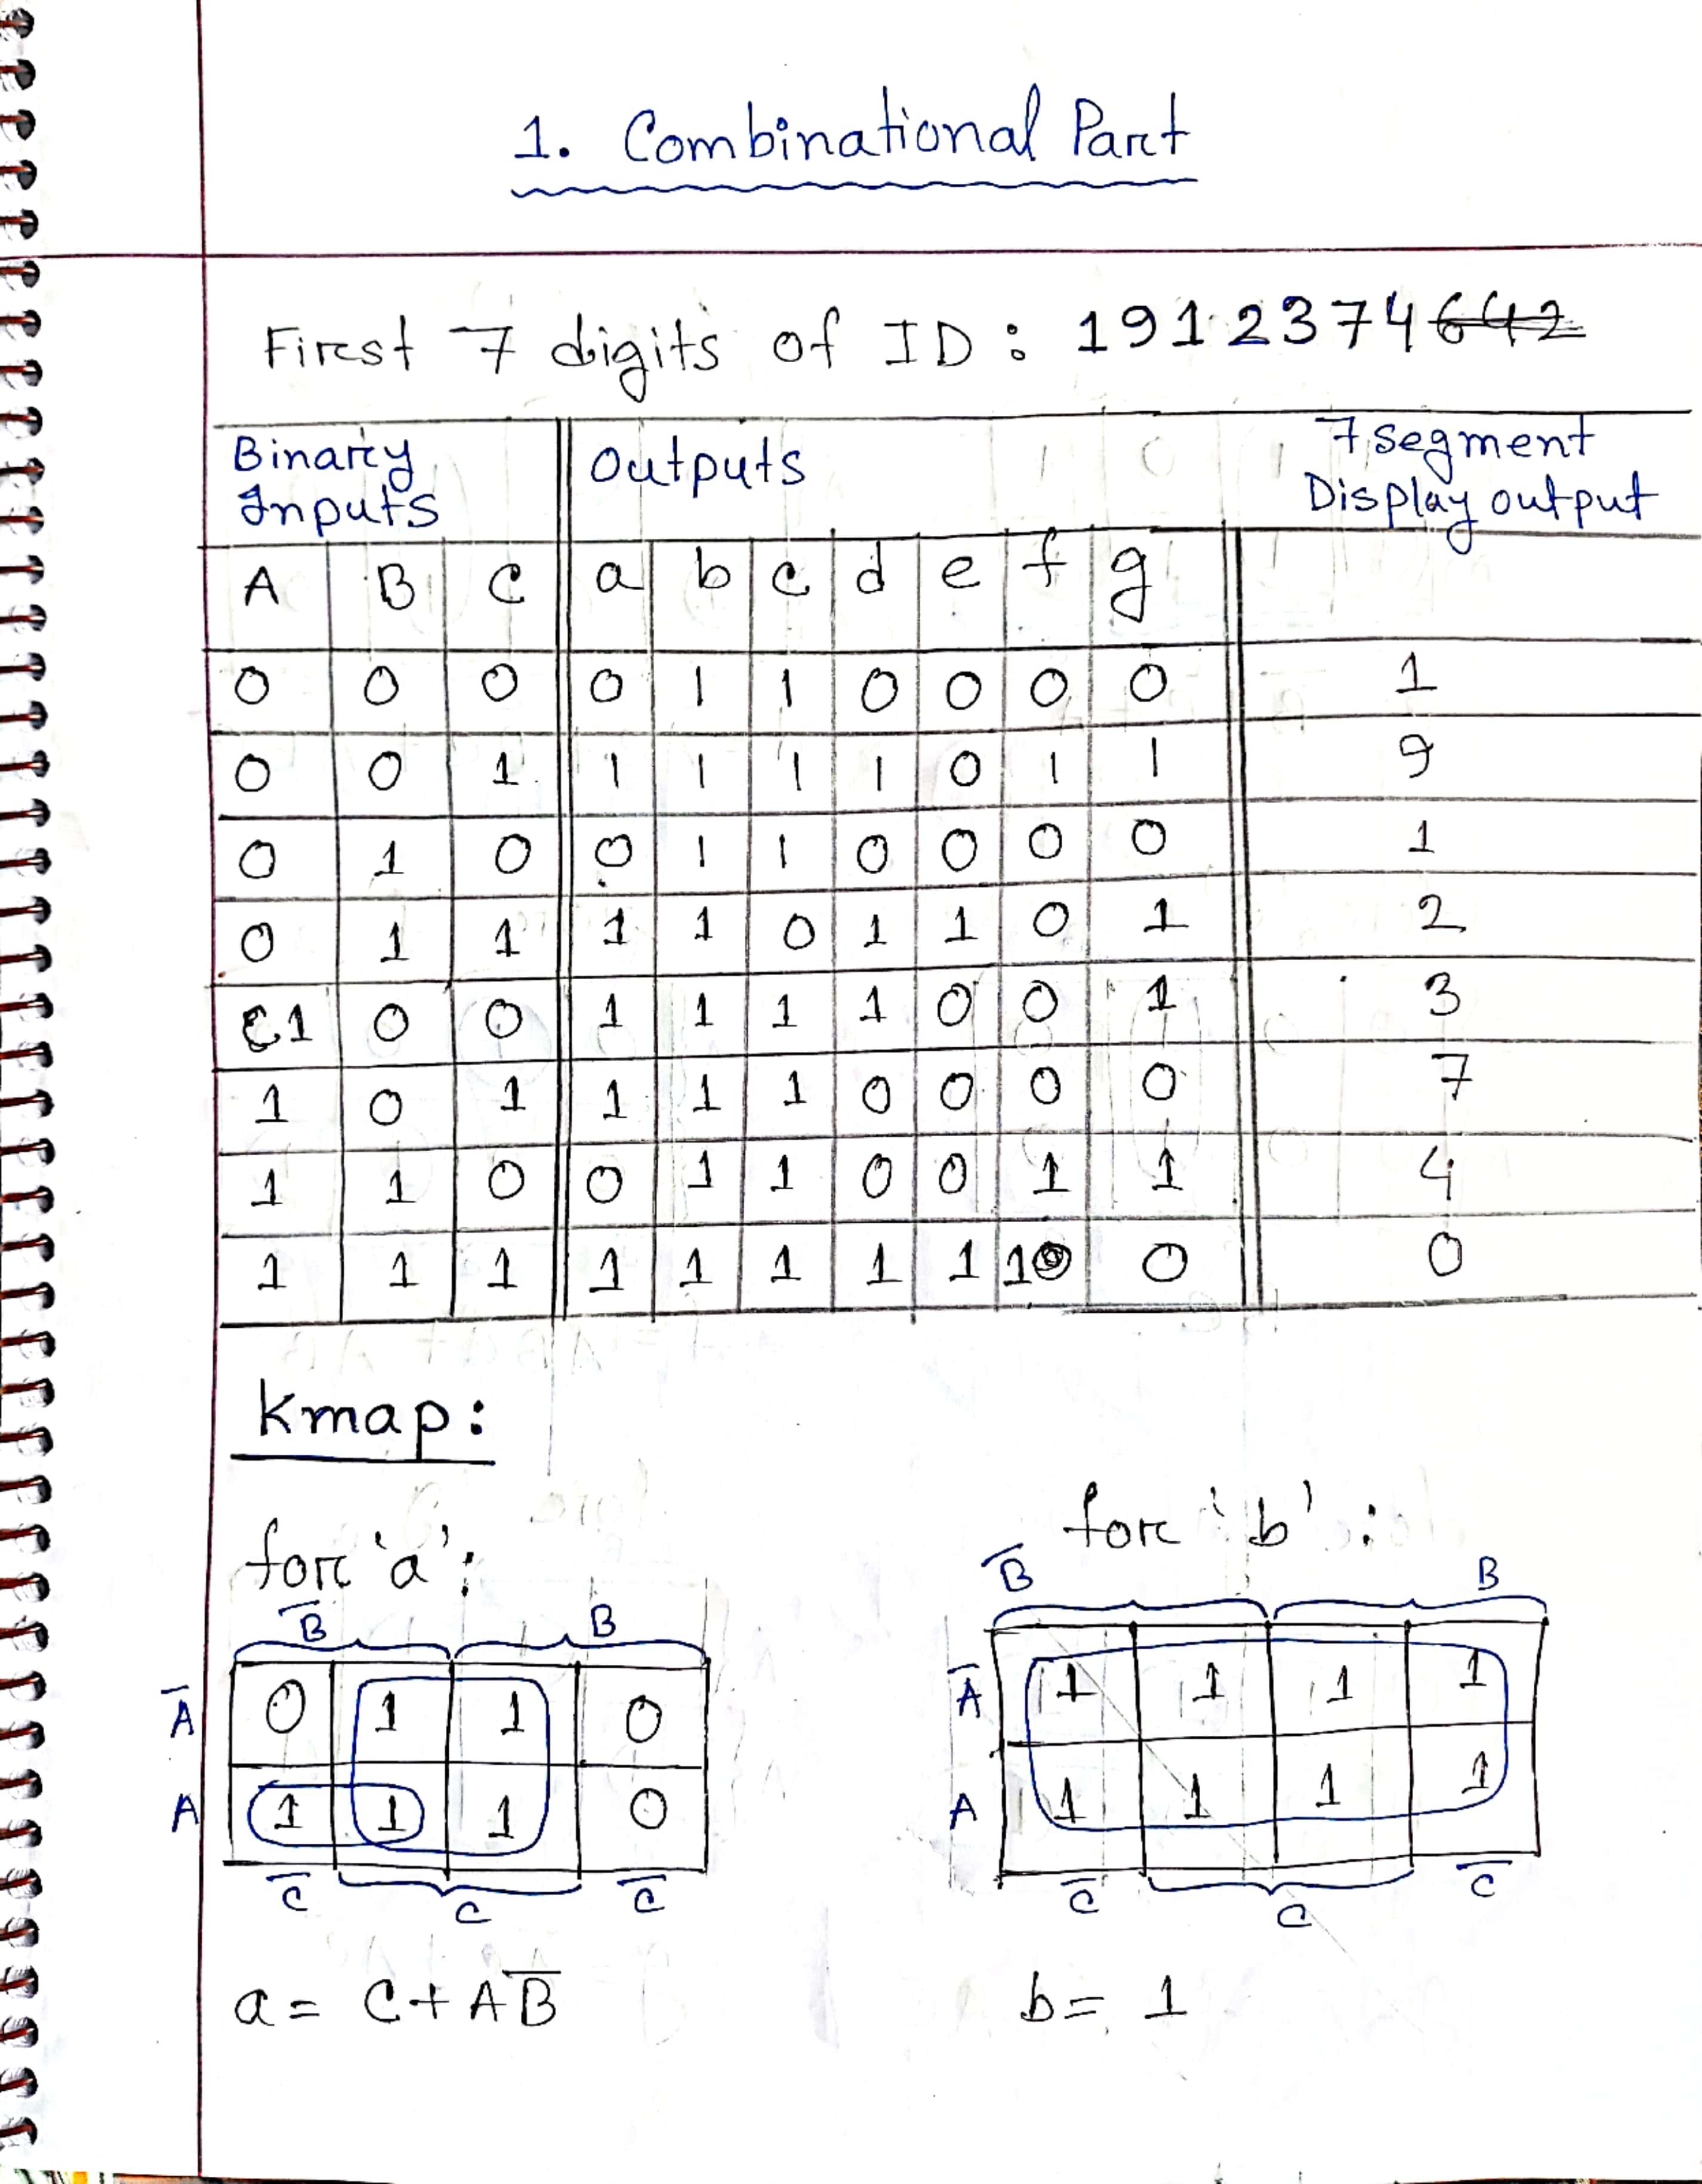 1. Combinational Part
First 7 digits of ID : 1912374642
Binary Inputs Outputs 7 segment Display output
A B C a b c d e f g
0 0 0 0 1 1 0 0 0 0 1
0 0 1 1 1 1 1 0 1 1 9
0 1 0 0 1 1 0 0 0 0 1
0 1 1 1 1 0 1 1 0 1 2
1 0 0 1 1 1 1 0 0 1 3
1 0 1 1 1 1 0 0 0 0 7
1 1 0 0 1 1 0 0 1 1 4
1 1 1 1 1 1 1 1 1 0 0
kmap:
for 'a':
B̅ B
A̅ 0 1 1 0
A 1 1 1 0
C̅ C C̅
a = C + AB̅
for 'b':
B̅ B
A̅ 1 1 1 1
A 1 1 1 1
C̅ C C̅
b = 1